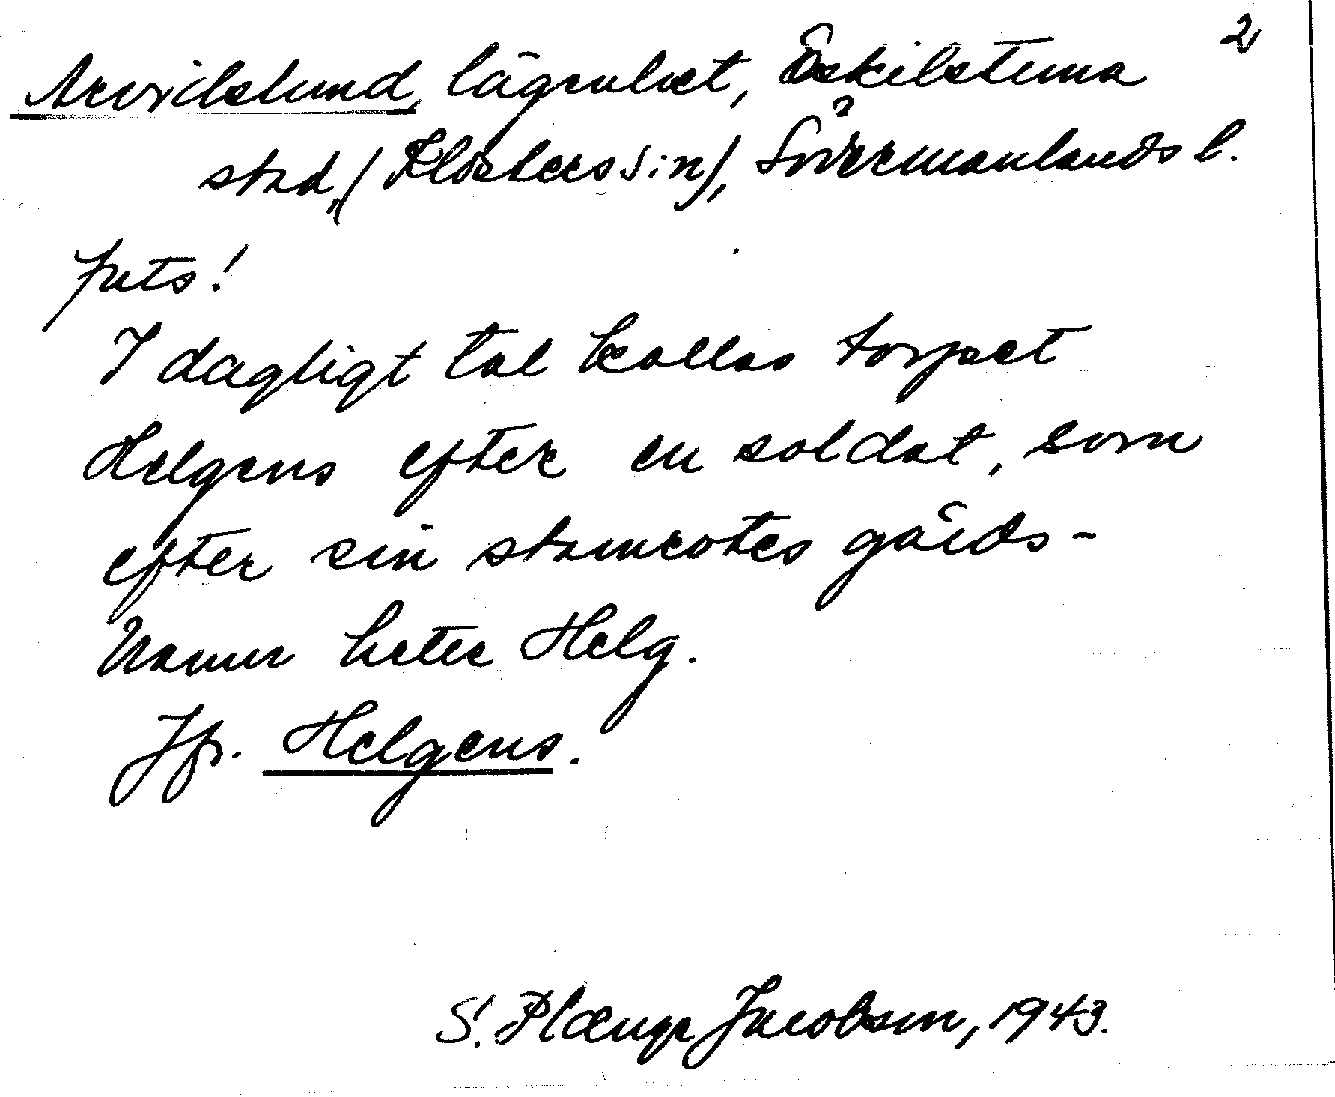 2
Arvidslund, lägenhet, Eskilstuna
stad, (Klosters s:n), Södermanlands l.
Juts!
I dagligt tal kallas torpet
Helgens efter en soldat, som
efter sin stamrotes gårds-
namn heter Helg.
Jfr. Helgens.
S. Plænge Jacobson, 1943.